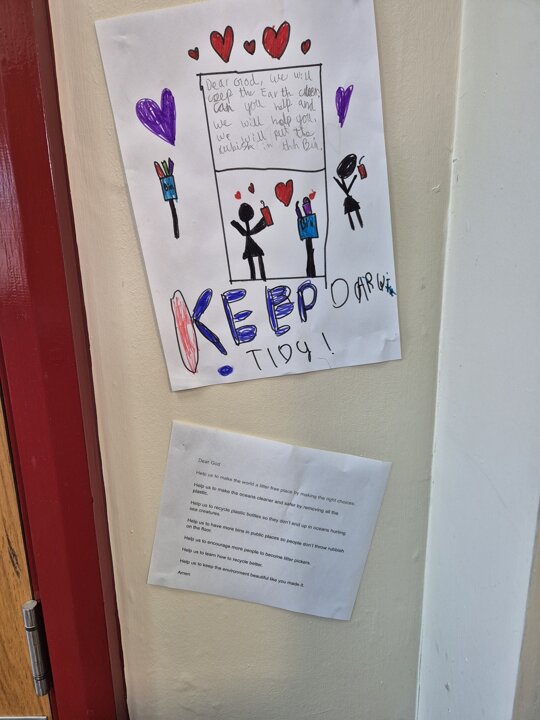 Dear God, we will
keep the Earth clean
can you help and
we will help you.
we will put the
rubish in thh Bin.
BIN
BIN
KEEP DARWI
TIDY!
Dear God
Help us to make the world a litter free place by making the right choices.
Help us to make the oceans cleaner and safer by removing all the
plastic.
Help us to recycle plastic bottles so they don't end up in oceans hurting
sea creatures.
Help us to have more bins in public places so people don't throw rubbish
on the floor.
Help us to encourage more people to become litter pickers.
Help us to learn how to recycle better.
Help us to keep the environment beautiful like you made it.
Amen